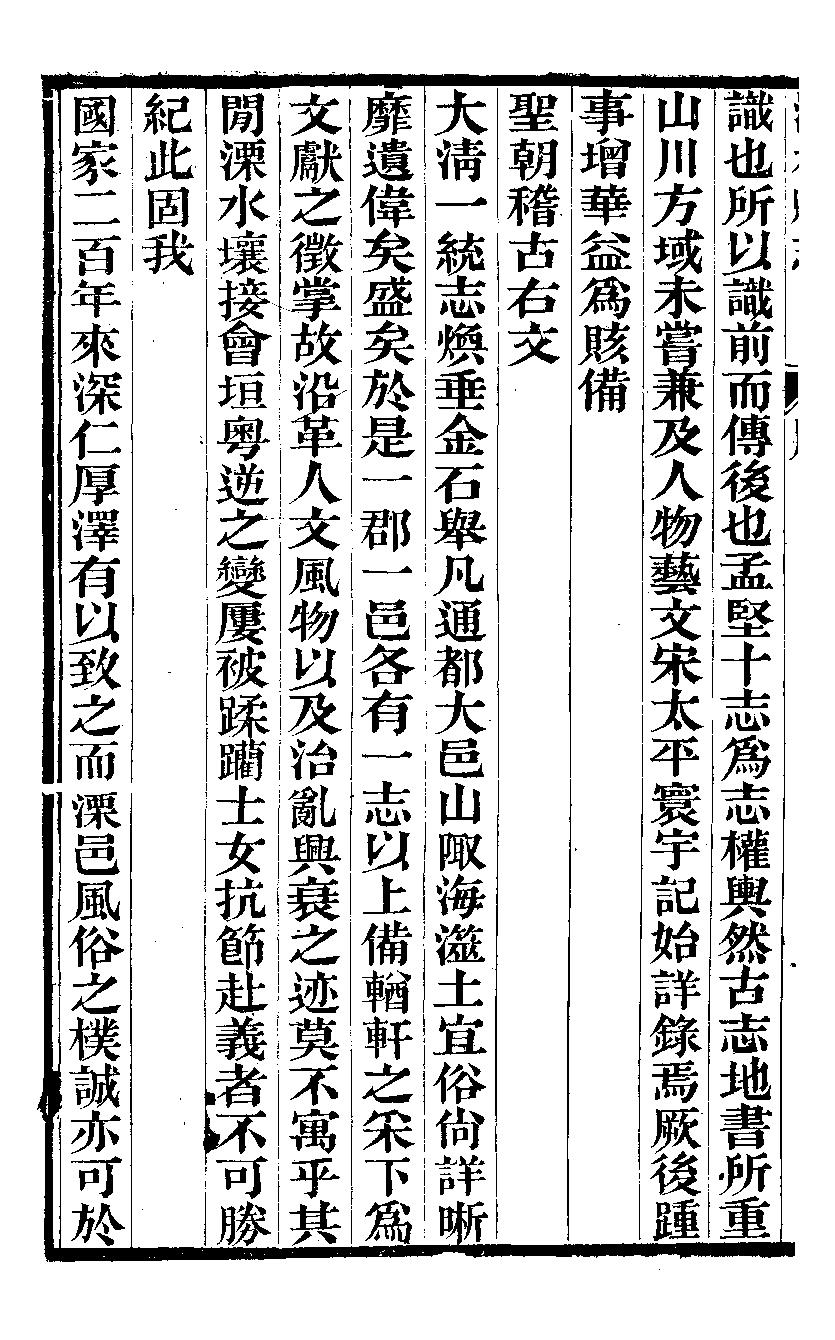 識也所以識前而傳後也孟堅十志爲志權輿然古志地書所重
山川方域未嘗兼及人物藝文宋太平寰宇記始詳錄焉厥後踵
事增華益爲賅備
聖朝稽古右文
大淸一統志煥垂金石舉凡通都大邑山陬海澨土宜俗尙詳晣
靡遺偉矣盛矣於是一郡一邑各有一志以上備輶軒之采下爲
文獻之徵掌故沿革人文風物以及治亂興衰之迹莫不寓乎其
閒溧水壤接會垣粵逆之變屢被蹂躪士女抗節赴義者不可勝
紀此固我
國家二百年來深仁厚澤有以致之而溧邑風俗之樸誠亦可於